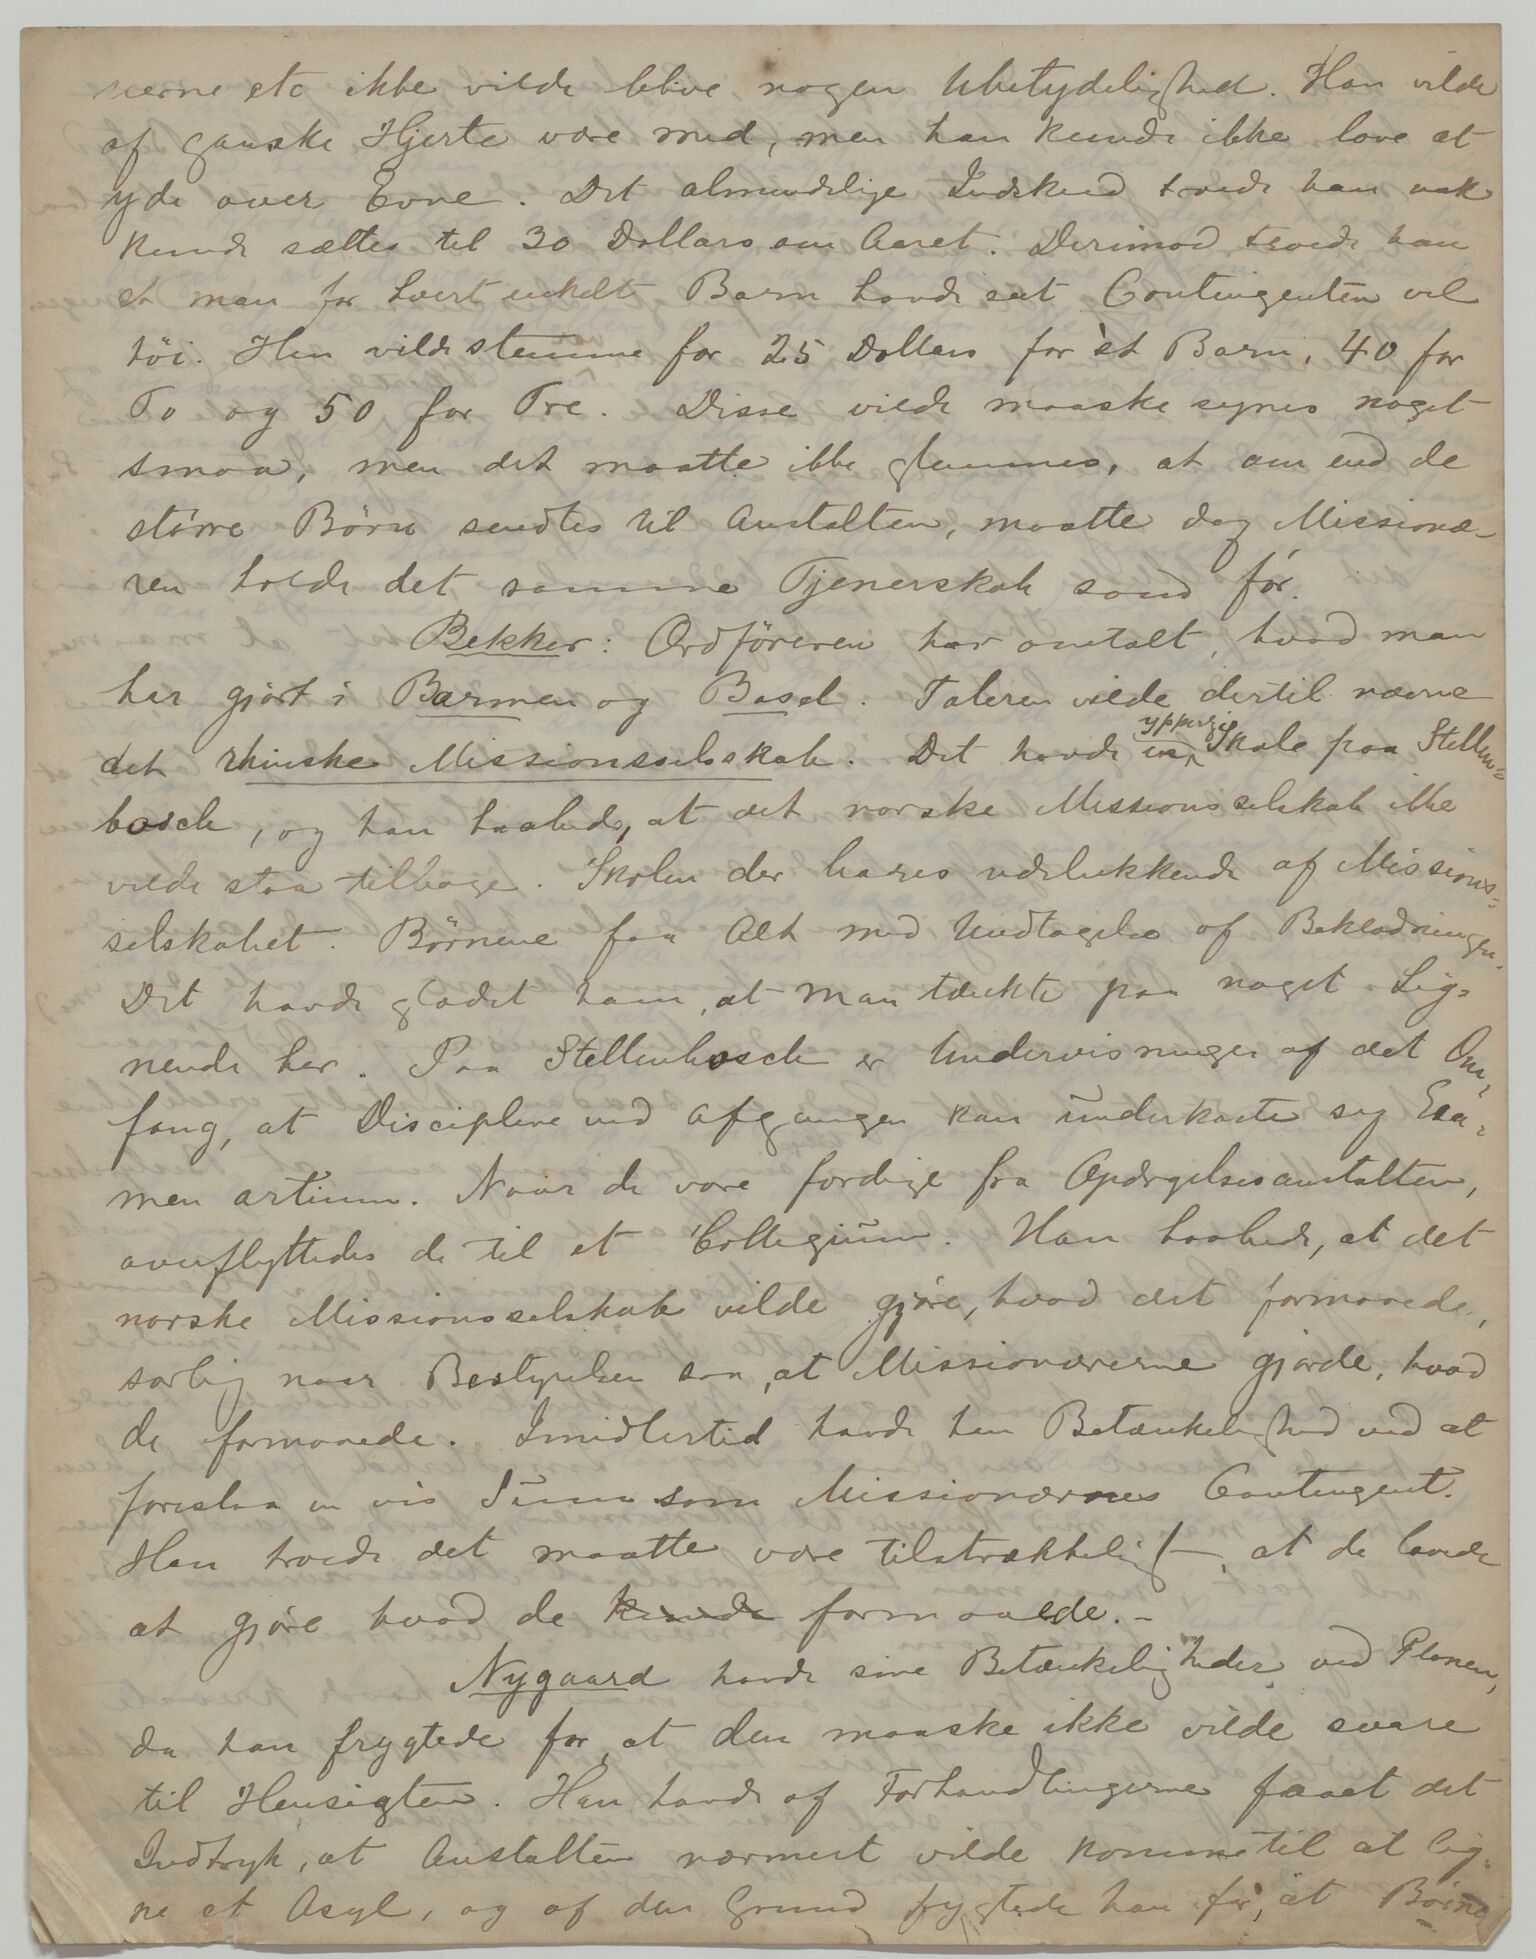 etc ikke vilde blive nogen Ubetydelighed. Han vilde
af ganske Hjerte være med, men han kunde ikke love at
yde over Evne. Det almindelige Indskud troede han nok
kunde sættes til 30 Dollars om Aaret. Derimod troede han
at man for hvert enkelt Barn havde sat Contingenten vel
höi. Han vilde stemme for 25 Dollars for ét Barn, 40 for
To og 50 for Tre. Disse vilde maaske synes noget
smaa, men det maatte ikke glemmes, at om end de
större Börn sendtes til Anstalten, maatte dog Missionæ-
ren holde det samme Tjenerskab som för.
Bekker: Ordföreren har omtalt, hvad man
har gjort i Barmen og Basel. Taleren vilde dertil nævne
det rhinske Missionsselskab. Det havde en ypperlig Skole paa Stellen-
bosch, og han haabede, at det norske Missionsselskab ikke
vilde staa tilbage. Skolen der bæres udelukkende af Missions-
selskabet. Börnene faa Alt med Undtagelse af Beklædningen.
Det havde glædet ham, at man tænkte paa noget Lig-
nende her. Paa Stellenbosch er Undervisningen af det Om-
fang, at Disciplene ved Afgangen kan underkaste sig Exa-
men artium. Naar de vare færdige fra Opdragelsesanstalten,
overflyttedes de til et Collegium. Han haabede, at det
norske Missionsselskab vilde gjöre, hvad det formaaede,
særlig naar Bestyrelsen saa, at Missionærerne gjorde, hvad
de formaaede. Imidlertid havde han Betænkelighed ved at
foreslaa en vis Sum som Missionærernes Contingent.
Han troede det maatte være tilstrækkeligt, at de lovede
at gjöre hvad de kunde formaaede. -
Nygaard havde sine Betænkeligheder ved Planen,
da han frygtede for, at den maaske ikke vilde svare
til Hensigten. Han havde af Forhandlingerne faaet det
Indtryk, at Anstalten nærmest vilde komme til at lig-
ne et Asyl, og af den Grund frygtede han for, at Börne